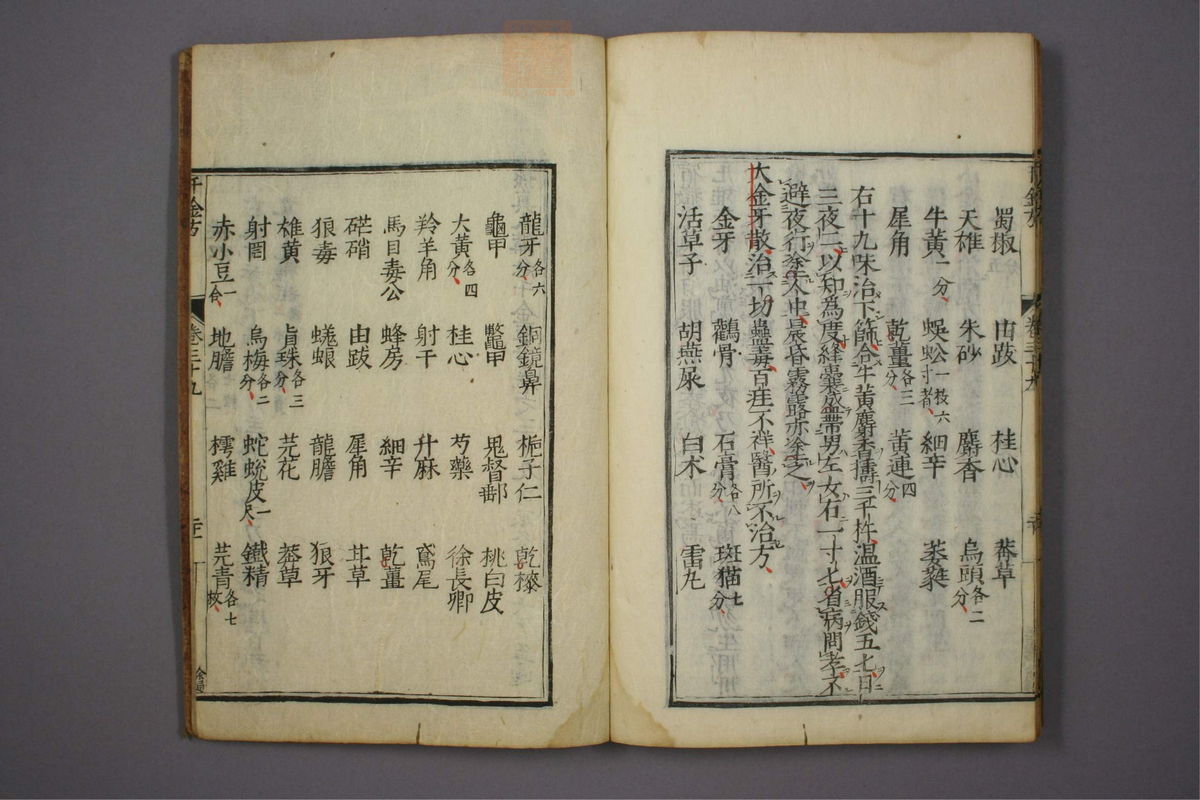 蜀椒 由跋 桂心 莽草
天雄 朱砂 麝香 烏頭各二分
牛黃一分 蜈蚣一枚六寸者 細辛 萎蕤
犀角 乾薑各三分 黃連四分
右十九味治下篩合牛黃麝香擣三千杵溫酒服錢五匕日
三夜二以知為度絳囊盛帶男左女右一寸匕省病問孝不
避夜行塗人中晨昏霧露亦塗之
大金牙散治一切蠱毒百疰不祥醫所不治方
金牙 鸛骨 石膏各八分 斑猫七分
活草子 胡燕屎 白朮 雷丸
龍牙各六分 銅鏡鼻 梔子仁 乾漆
龜甲 鼈甲 鬼督郵 桃白皮
大黃各四分 桂心 芍藥 徐長卿
羚羊角 射干 升麻 鳶尾
馬目毒公 蜂房 細辛 乾薑
芒硝 由跋 犀角 甘草
狼毒 蜣蜋 龍膽 狼牙
雄黃 真珠各三分 芫花 莽草
射罔 烏梅各二分 蛇蛻皮一尺 鐵精
赤小豆一合 地膽 樗雞 芫青各七枚
千金方 卷三十九